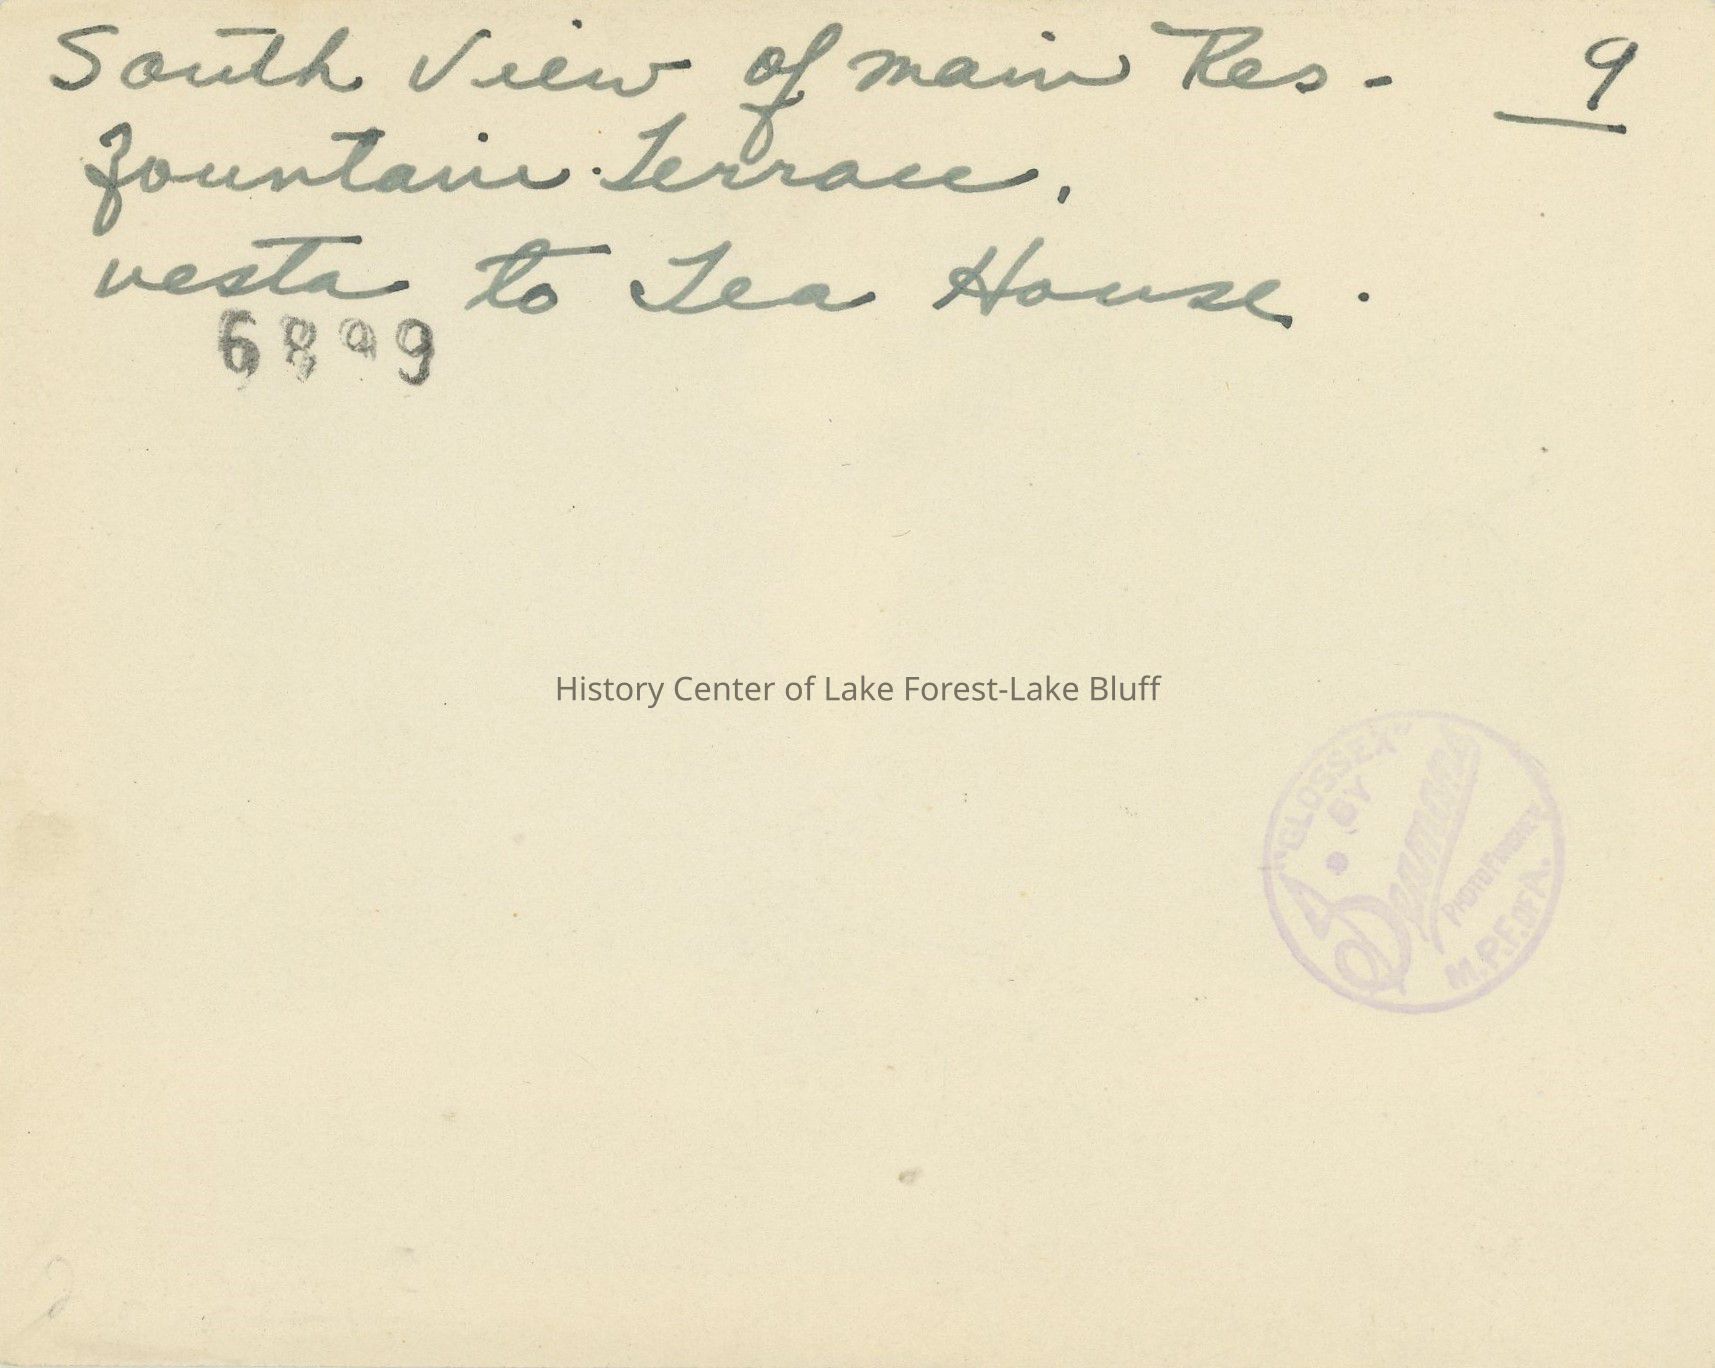 South View of main Res - 9
fountain Terrace,
vesta to Tea House .
6899
History Center of Lake Forest-Lake Bluff
"GLOSSEX"
BY
PHOTO FINISHER
M.P.F. OF A.